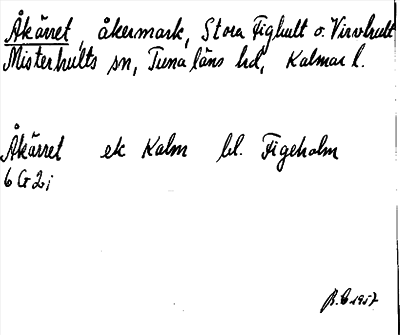 Åkärret, åkermark, Stora Fighult o. Virvhult
Misterhults sn, Tuna läns hd, Kalmar l.
Åkärret ek Kalm bl. Figeholm
6 G 2 i
1957